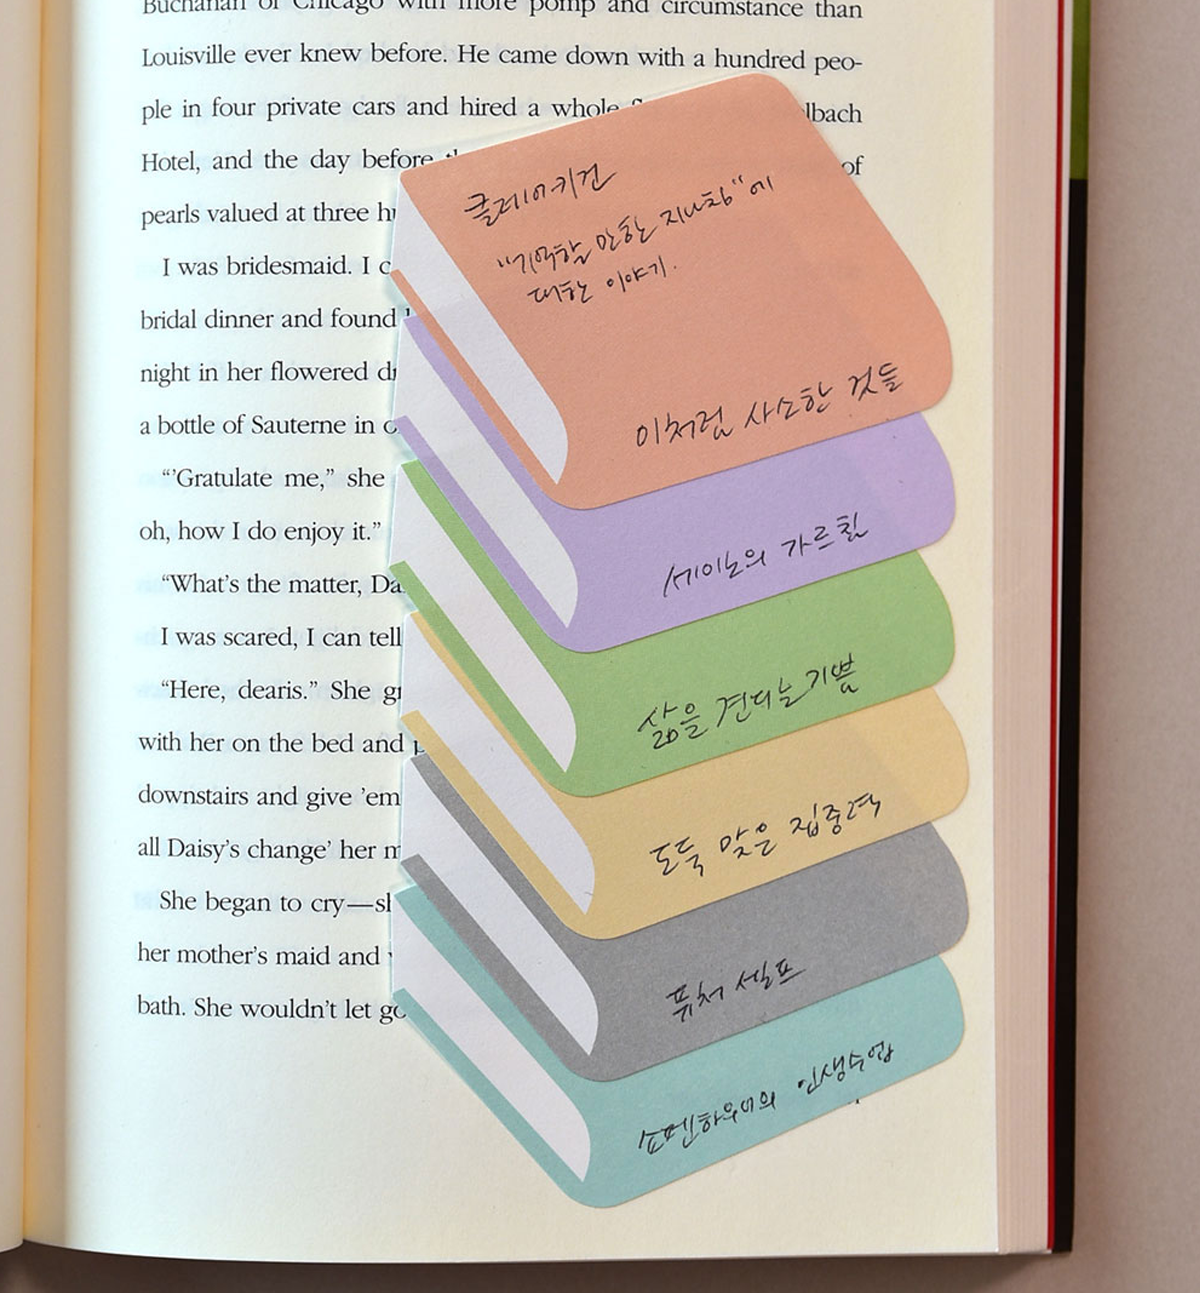 Buchanan of Chicago with more pomp and circumstance than
Louisville ever knew before. He came down with a hundred peo-
ple in four private cars and hired a whole
lbach
Hotel, and the day before
of
pearls valued at three
I was bridesmaid. I
bridal dinner and found
night in her flowered
a bottle of Sauterne in
“’Gratulate me,” she
oh, how I do enjoy it.”
“What’s the matter, Da
I was scared, I can tell
“Here, dearis.” She
with her on the bed and
downstairs and give ’em
all Daisy’s change’ her
She began to cry—sh
her mother’s maid and
bath. She wouldn’t let go
클레어키건
“기억할 만한 지나침”에
대한 이야기.
이처럼 사소한 것들
세이노의 가르침
삶을 견디는 기쁨
도둑 맞은 집중력
퓨처 셀프
쇼펜하우어의 인생수업